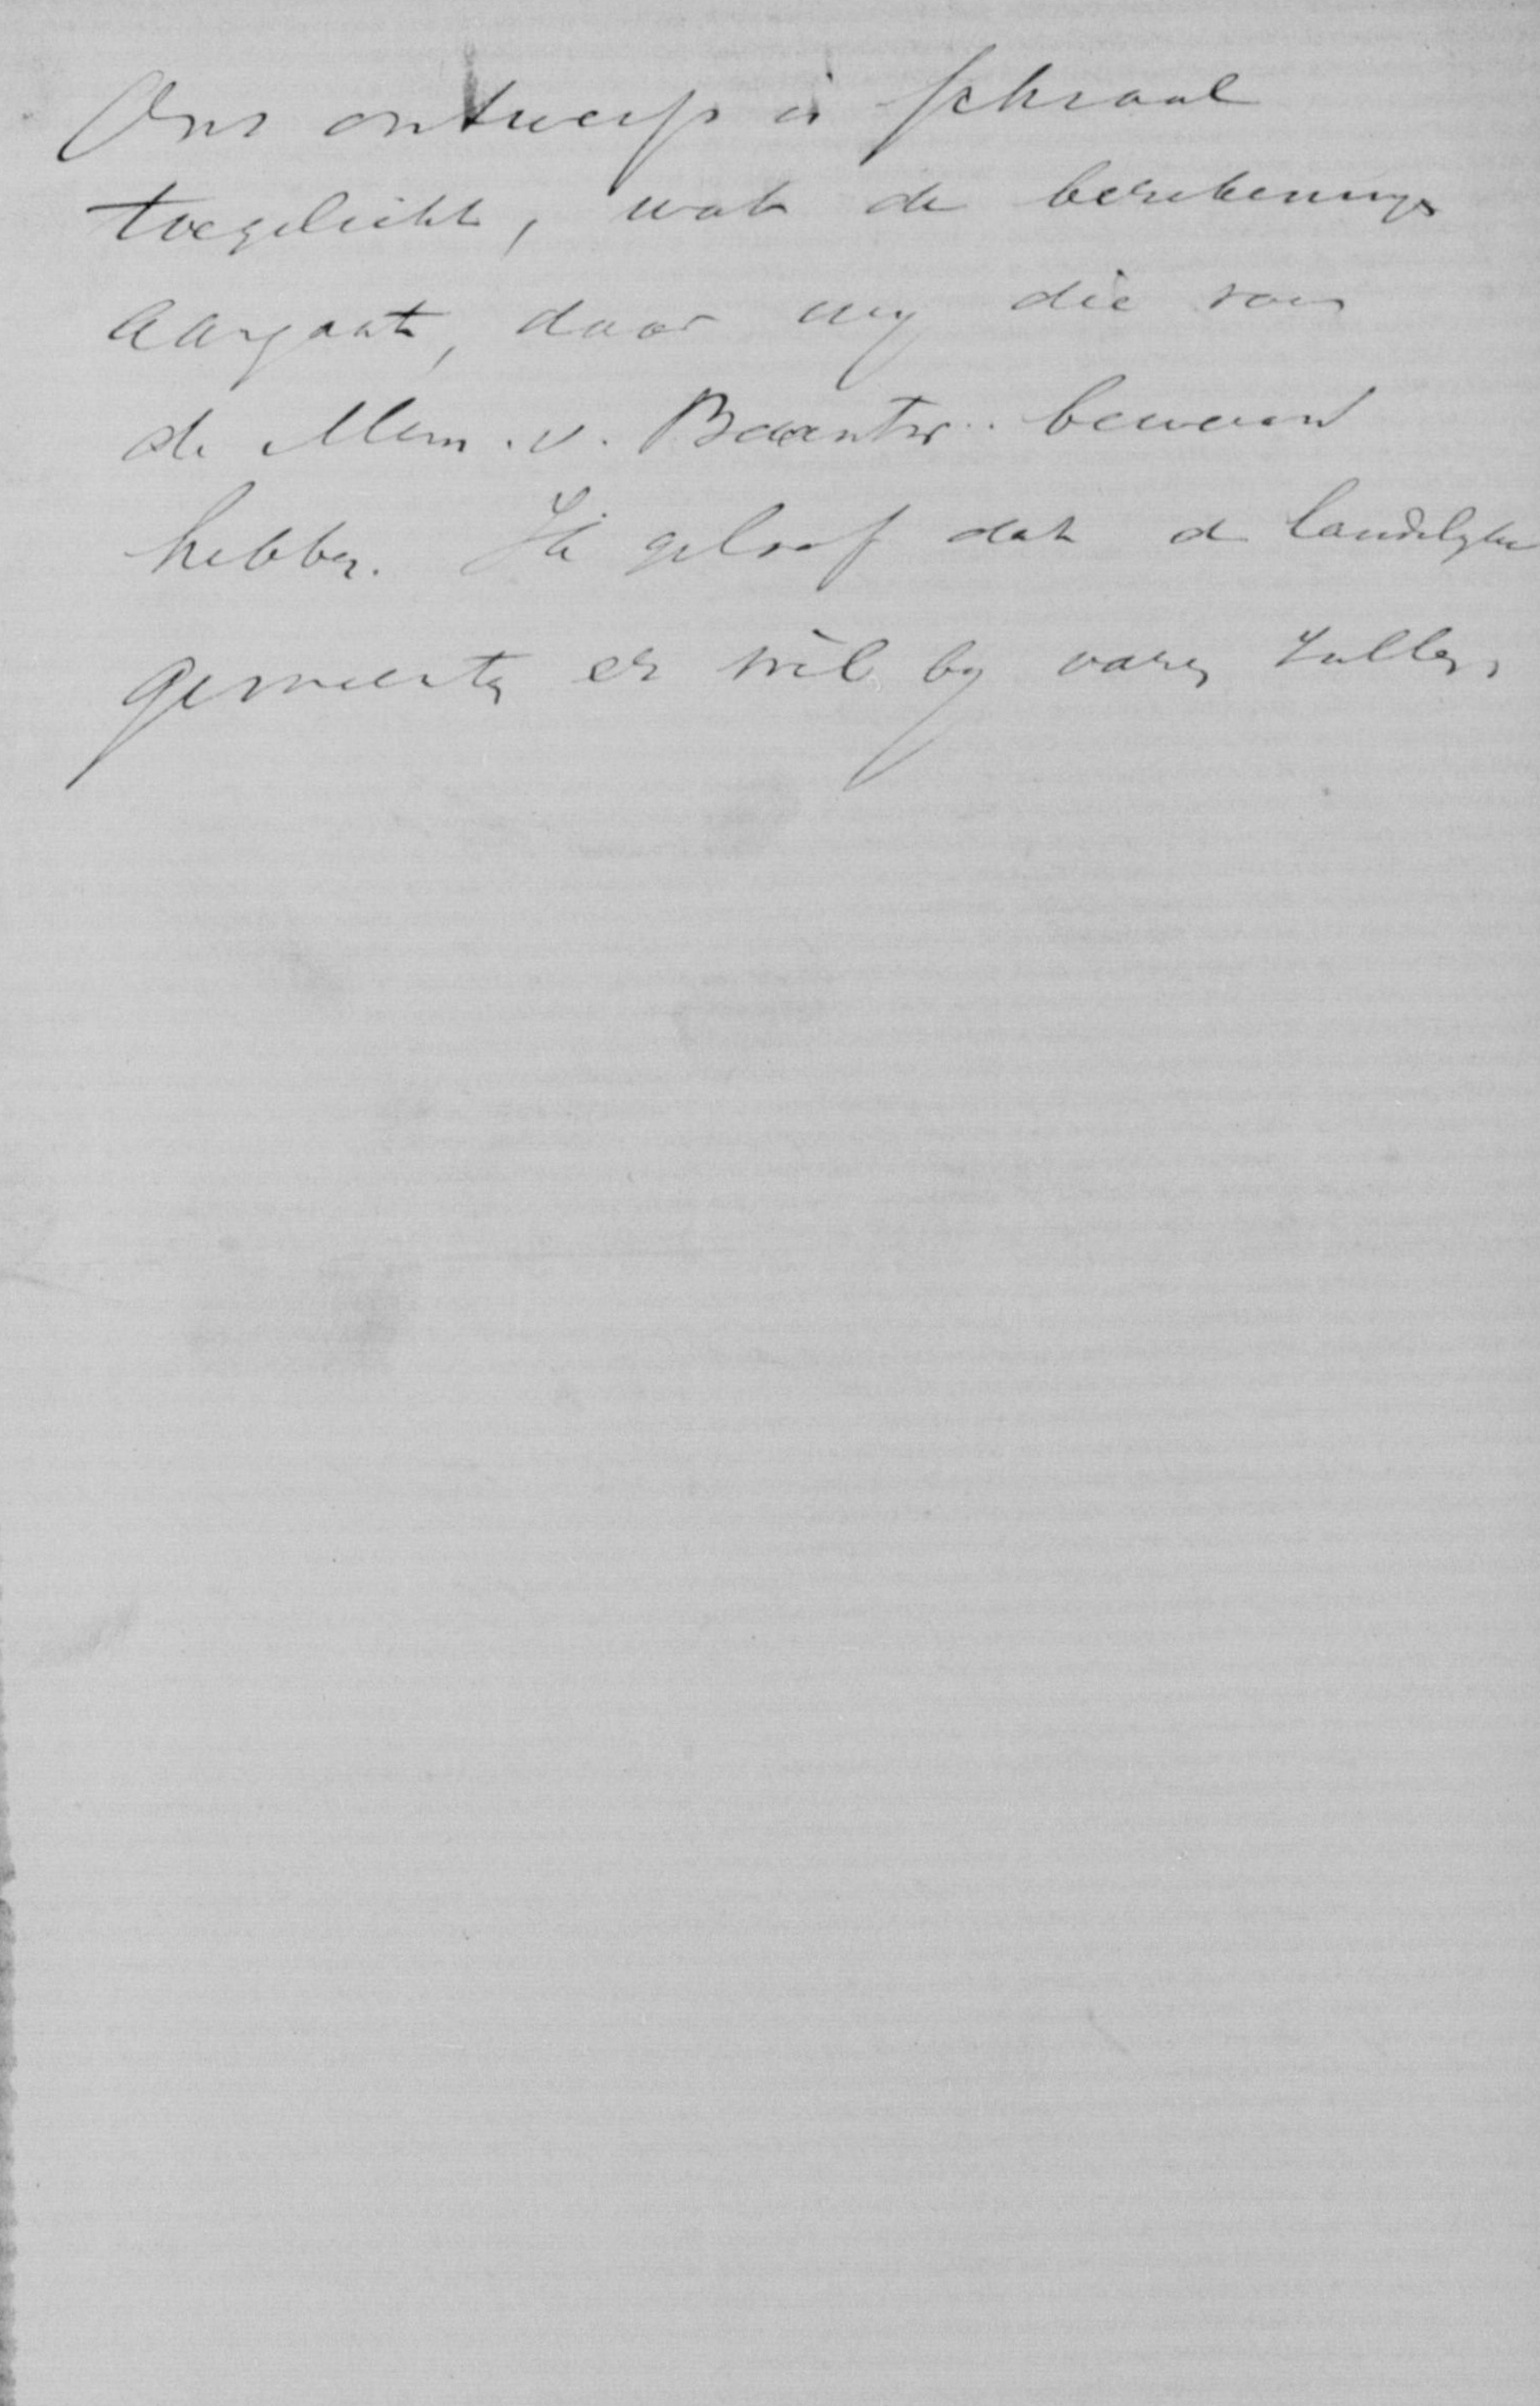 Ons ontwerp is schraal
toegelicht, wat de berekeningen
aangaat, daar wij die voor
de Mem. v. Beantw. bewaard
hebben. Ik geloof dat de landelijke
gemeenten er wèl bij varen zullen.